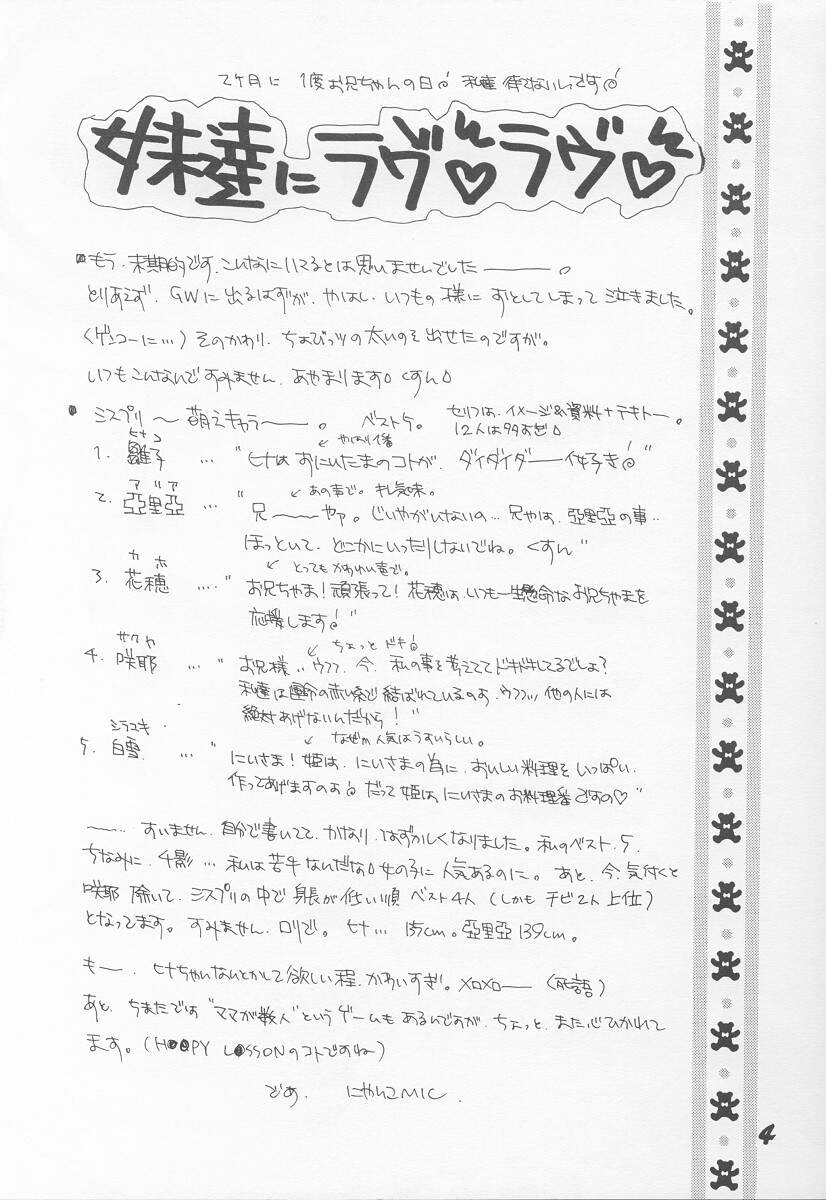 2ケ月に 1度お兄ちゃんの日 私達 待てないんです
妹達にラヴ♡ラヴ♡
もう、末期的です。こんなにハマるとは思いませんでした———。
とりあえず、GWに出るはずが、やはし、いつもの様に おとしてしまって 泣きました。
(ゲンコーに…) そのかわり、ちょびっツの太いのを出せたのですが。
いつもこんなんですみません。あやまります。くすん。
シスプリ〜萌えキャラ〜——。 ベスト5。 セリフは、イメージ&資料+テキトー。
12人は多すぎ。
ヒナコ
やはり1番
1. 雛子 … "ヒナは おにいたまのコトが、ダイダイダー—イ好き"
アリア
あの声で。キレ気味。
2. 亞里亞 … "兄———やァ。じいやがいないの… 兄やは、亞里亞の事…
ほっといて、どこかにいったりしないでね。くすん"
カホ
とってもかわいい声で。
3. 花穂 … "お兄ちゃま!頑張って!花穂は、いつも一生懸命なお兄ちゃまを
応援します"
サクヤ
ちょっとドキ
4. 咲耶 … "お兄様…ウフフ、今、私の事を考えててドキドキしてるでしょ?
私達は運命の赤い糸で結ばれているのよ、ウフフッ、他の人には
絶対あげないんだから!"
シラユキ
なぜか人気はうすいらしい。
5. 白雪 … "にいさま!姫は、にいさまの為に、おいしい料理をいっぱい、
作ってあげますのよ だって姫は、にいさまのお料理番ですの♡"
—… すいません、自分で書いてて、かなり、はずかしくなりました。私のベスト5。
ちなみに、千影… 私は苦手なんだな 女の子に人気あるのに。あと、今、気付くと
咲耶 除いて、シスプリの中で 身長が低い順 ベスト4人 (しかも チビ2人 上位)
となってます。すみません、ロリで。ヒナ… 135cm。亞里亞139cm。
もー、ヒナちゃんないとかして欲しい程、かわいすぎ。メロメロ— (死語)
あと、ちまたでは "ママが数人" というゲームもあるんですが、ちょっと、また心ひかれて
ます。(H●●PY L●SSONのコトですね)
でわ。 にゃんこMIC.
4